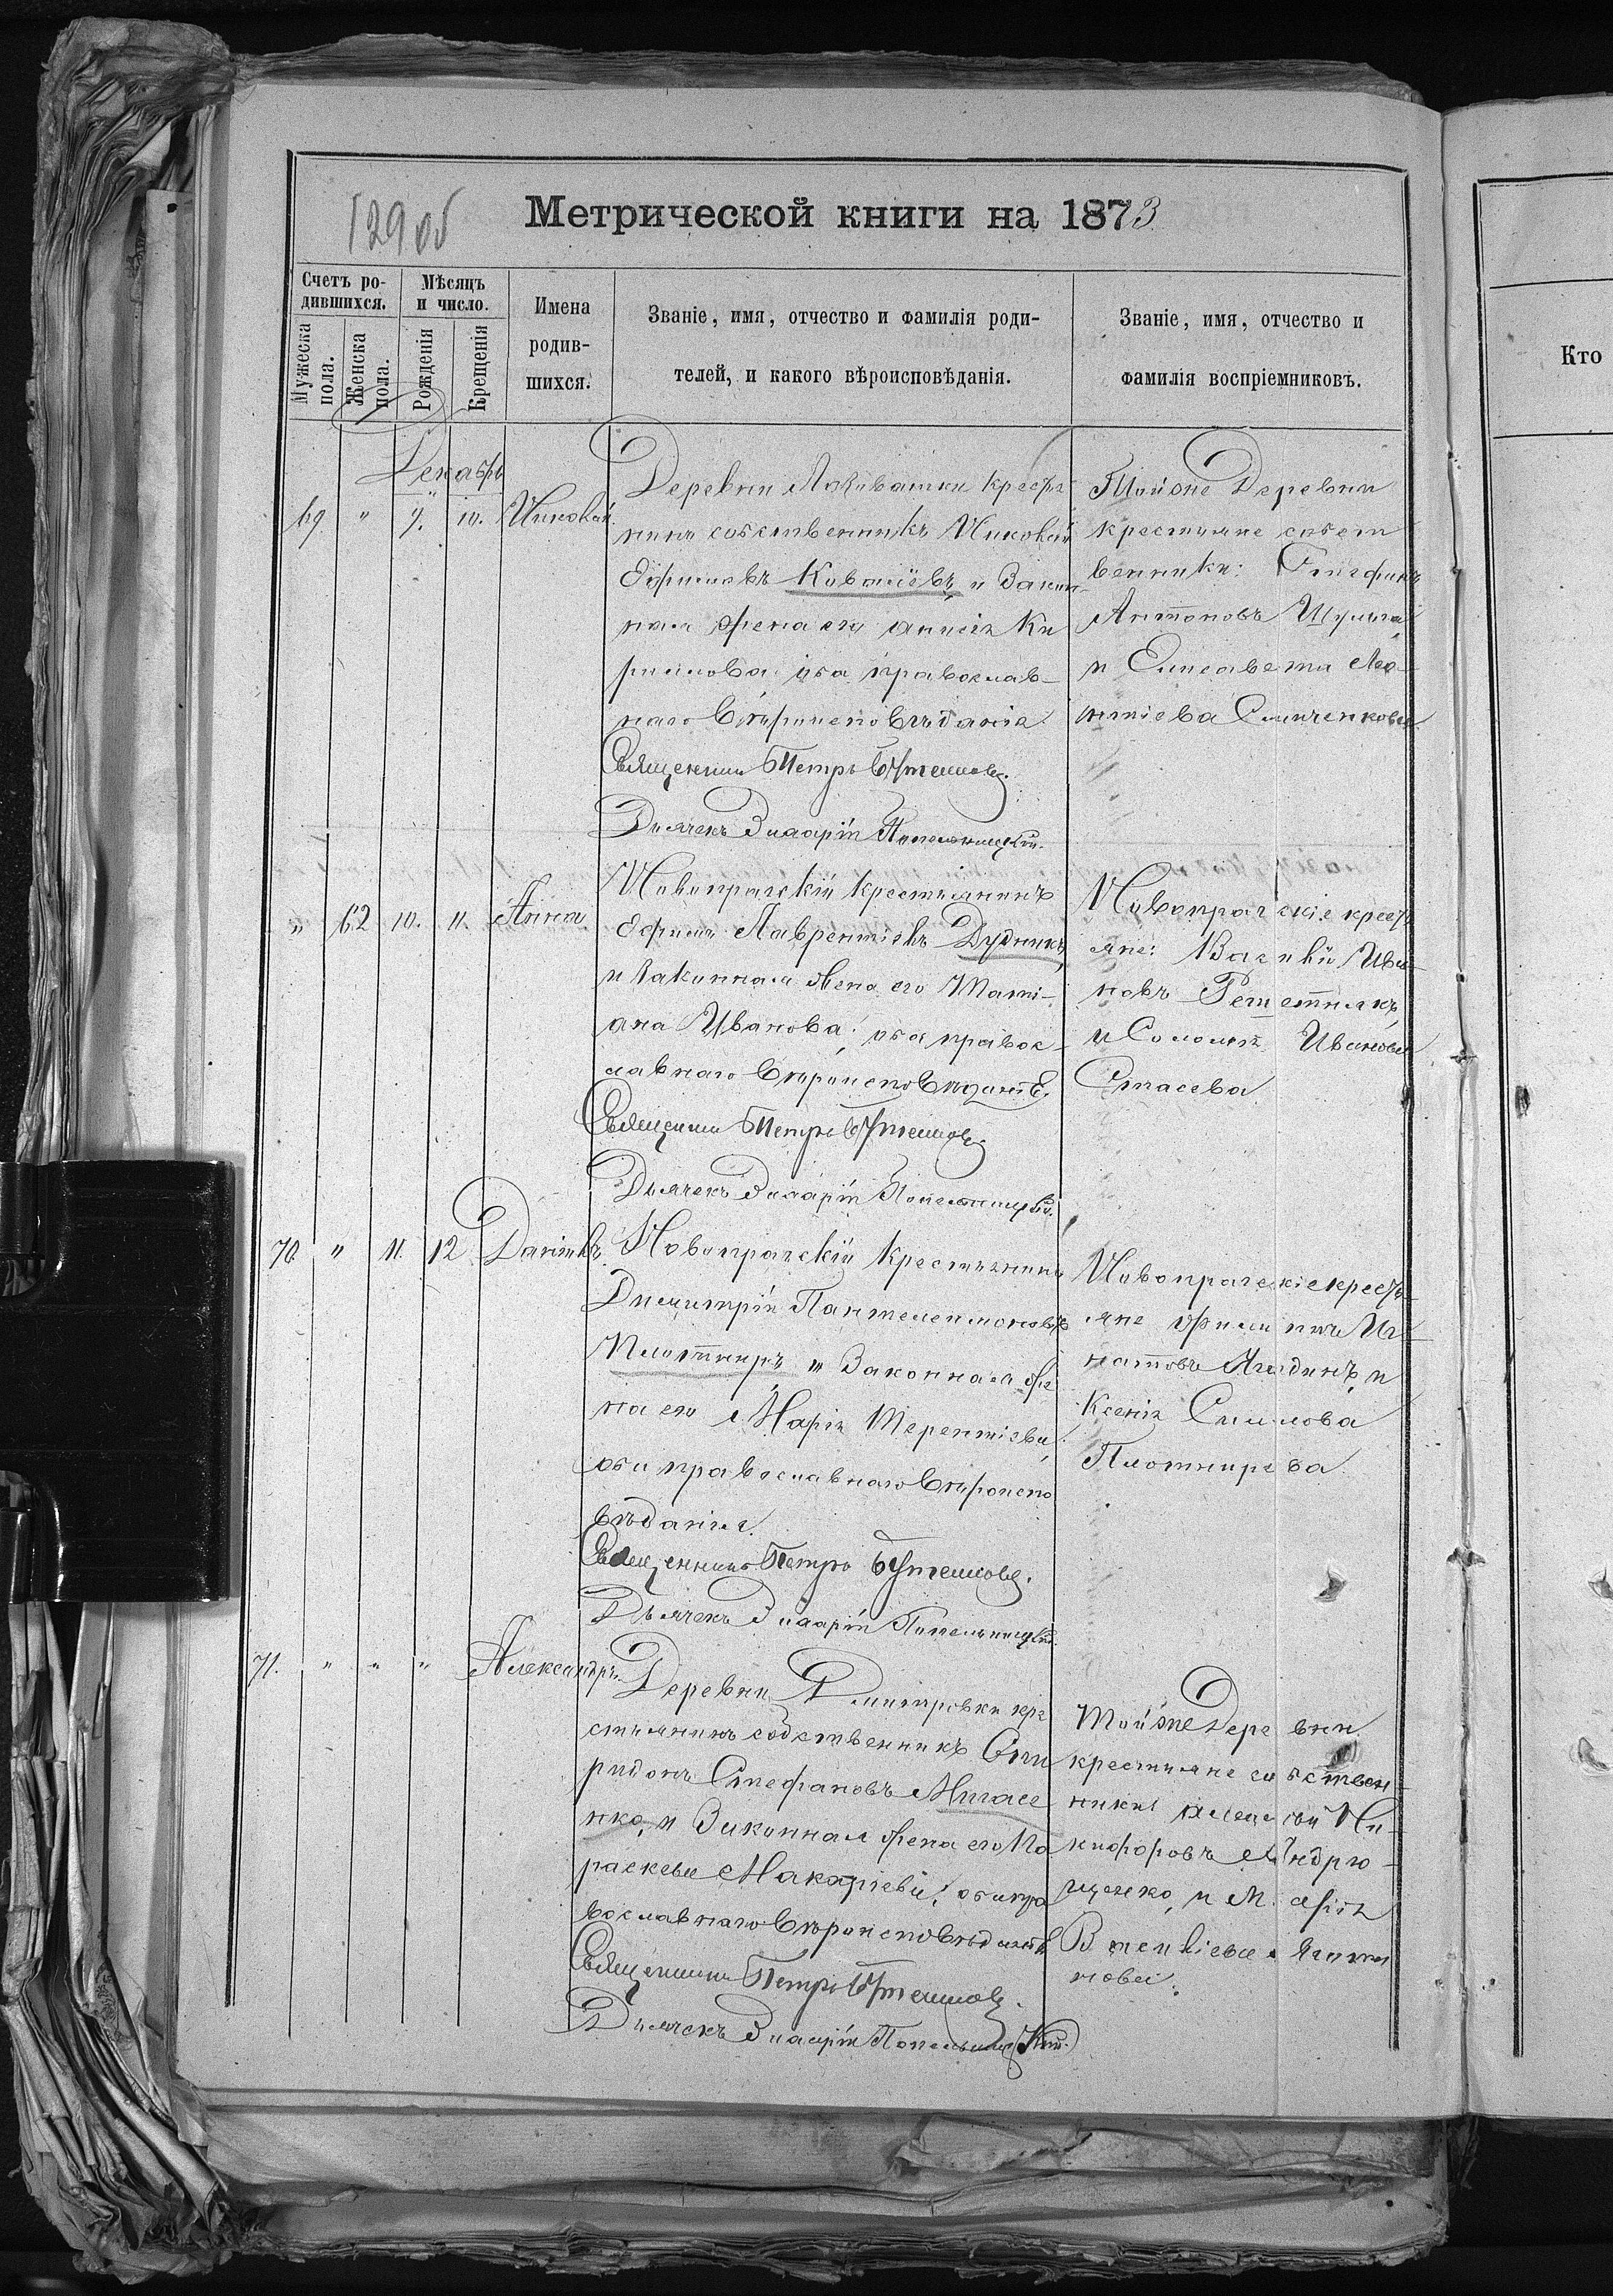 129 об
Метрической книги на 1873
Счетъ ро-
дившихся.
Мужеска
пола.
Женска
пола.
Мѣсяцъ
и число.
Рожденія
Крещенія
Имена
родив-
шихся.
Званіе, имя, отчество и фамилія роди-
телей, и какого вѣроисповѣданія.
Званіе, имя, отчество и
фамилія воспріемниковъ.
Кто
Декабрь
69 " 9. 10. Николай
Деревни крестья
нинъ собственникъ Николай
Ефимовъ Ковалёвъ, и закон-
ная жена его Анисія Ки
рилова оба православ-
наго вѣроисповѣданія.
Священникъ Петръ
Дьячекъ Иларій
Тойже Деревни
крестьяне собст
венники:
Антоновъ Шульга
и Елисавета Лео-
нтіева
" 62 10. 11. Анна
Новопражскій крестьянинъ
Ефимъ Лаврентіевъ Дудникъ,
и законная жена его Таті-
ана Иванова; оба правос-
лавнаго вѣроисповѣданія.
Священникъ Петръ
Дьячекъ Иларій
Новопражскіе кресть-
яне: Василій Ива-
новъ Решетнякъ,
и Соломія Иванова
Стасева
70. " 11. 12 Даніилъ
Новопражскій крестьянинъ
Димитрій Пантелеимоновъ
Плотниръ и законная же
на его Марія Терентіева,
оба православнаго вѣроиспо
вѣданія.
Священникъ Петръ
Дьячекъ Иларій
Новопражскіе кресть-
яне Филипъ Иг-
натовъ Ягодинъ, и
Ксенія Симова
Плотнирева
71. " " " Александръ
Деревни Дмитровки кре
стьянинъ собственникъ Спи
ридонъ Стефановъ Мигасе
нко, и законная жена его Па
раскева Макаріева; оба пра
вославнаго вѣроисповѣданія
Священникъ Петръ
Дьячекъ Иларій
Тойже Деревни
крестьяне собствен-
ники Алексѣй Ни-
кифоровъ Андрю-
щенко, и Марія
нова.